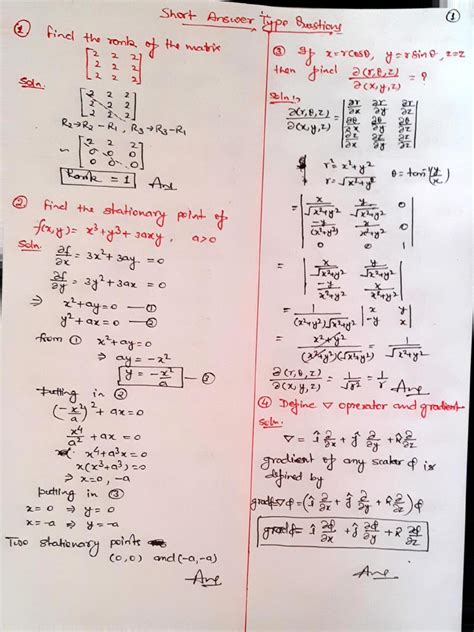 Short Answer Type Questions
①
① Find the rank of the matrix
[2 2 2
2 2 2
2 2 2]
Soln.
[2 2 2
2 2 2
2 2 2]
R₂→R₂-R₁, R₃→R₃-R₁
~ [2 2 2
0 0 0
0 0 0]
Rank = 1 Ans
② Find the stationary point of
f(x,y) = x³+y³+3axy, a>0
Soln.
∂f/∂x = 3x²+3ay = 0
∂f/∂y = 3y²+3ax = 0
⇒ x²+ay=0 —①
y²+ax=0 —②
from ① x²+ay=0
⇒ ay = -x²
y = -x²/a —③
putting in ②
(-x²/a)² + ax = 0
x⁴/a² + ax = 0
x⁴+a³x=0
x(x³+a³)=0
⇒ x=0, -a
putting in ③
x=0 ⇒ y=0
x=-a ⇒ y=-a
Two stationary points
(0,0) and (-a,-a)
Ans
③ If x=rcosθ, y=rsinθ, z=z
then find ∂(r,θ,z)/∂(x,y,z) = ?
Soln.
∂(r,θ,z)/∂(x,y,z) = |∂r/∂x ∂r/∂y ∂r/∂z
∂θ/∂x ∂θ/∂y ∂θ/∂z
∂z/∂x ∂z/∂y ∂z/∂z|
r²=x²+y²
r=√x²+y² θ=tan⁻¹(y/x)
= |x/√x²+y² y/√x²+y² 0
-y/(x²+y²) x/x²+y² 0
0 0 1|
= |x/√x²+y² y/√x²+y²
-y/x²+y² x/x²+y²|
= 1/(x²+y²)√x²+y² |x y
-y x|
= x²+y²/(x²+y²)(√x²+y²) = 1/√x²+y²
∂(r,θ,z)/∂(x,y,z) = 1/√r² = 1/r Ans
④ Define ∇ operater and gradient
Soln.
∇ = î ∂/∂x + ĵ ∂/∂y + k̂ ∂/∂z
gradient of any scaler ϕ is
defined by
gradϕ=∇ϕ=(î ∂/∂x + ĵ ∂/∂y + k̂ ∂/∂z)ϕ
gradϕ= î ∂ϕ/∂x + ĵ ∂ϕ/∂y + k̂ ∂ϕ/∂z
Ans